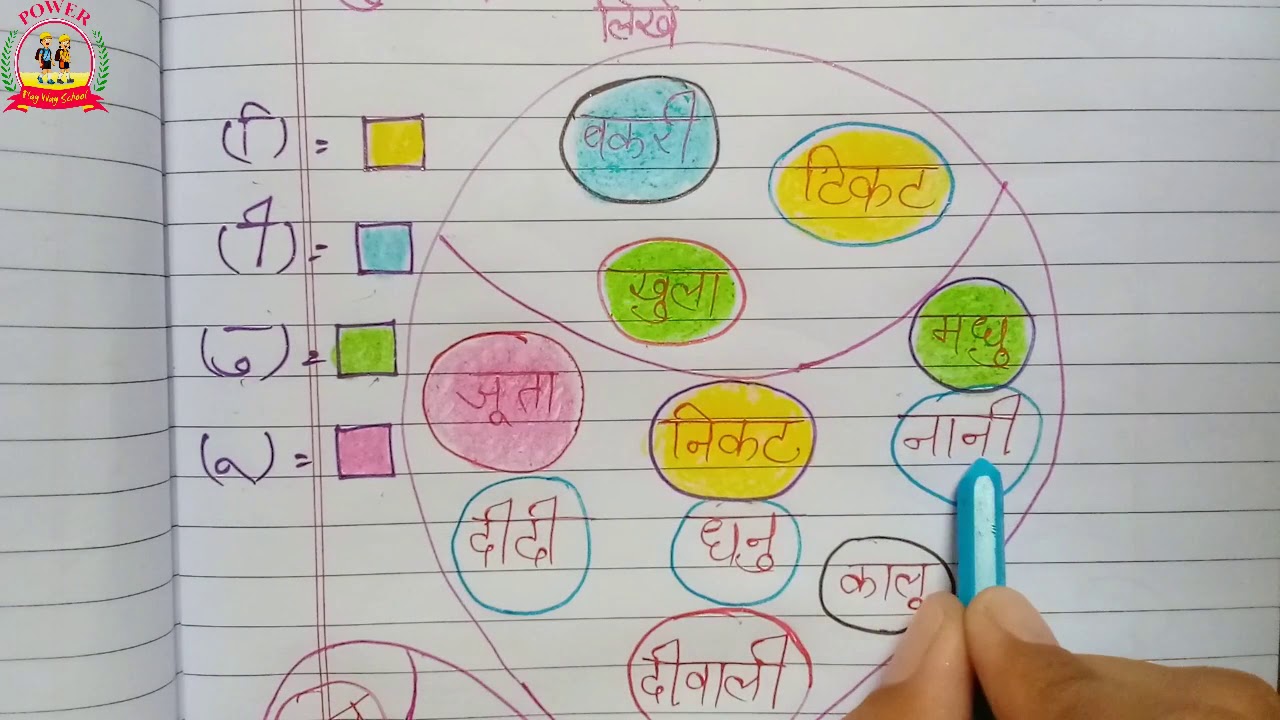 POWER
Play Way School
लिखे
(ि) =
(ी) =
(ु) =
(ू) =
बकरी
टिकट
खुला
मधु
जूता
निकट
नानी
दीदी
धनु
कालू
दीवाली